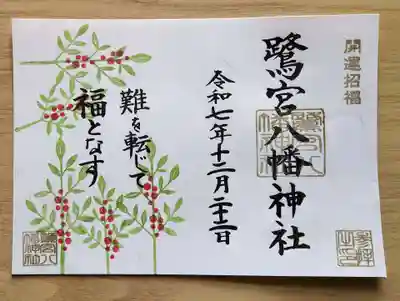 開運招福
鷺宮八幡神社
令和七年十二月二十二日
難を転じて
福となす
鷺宮八
幡神社